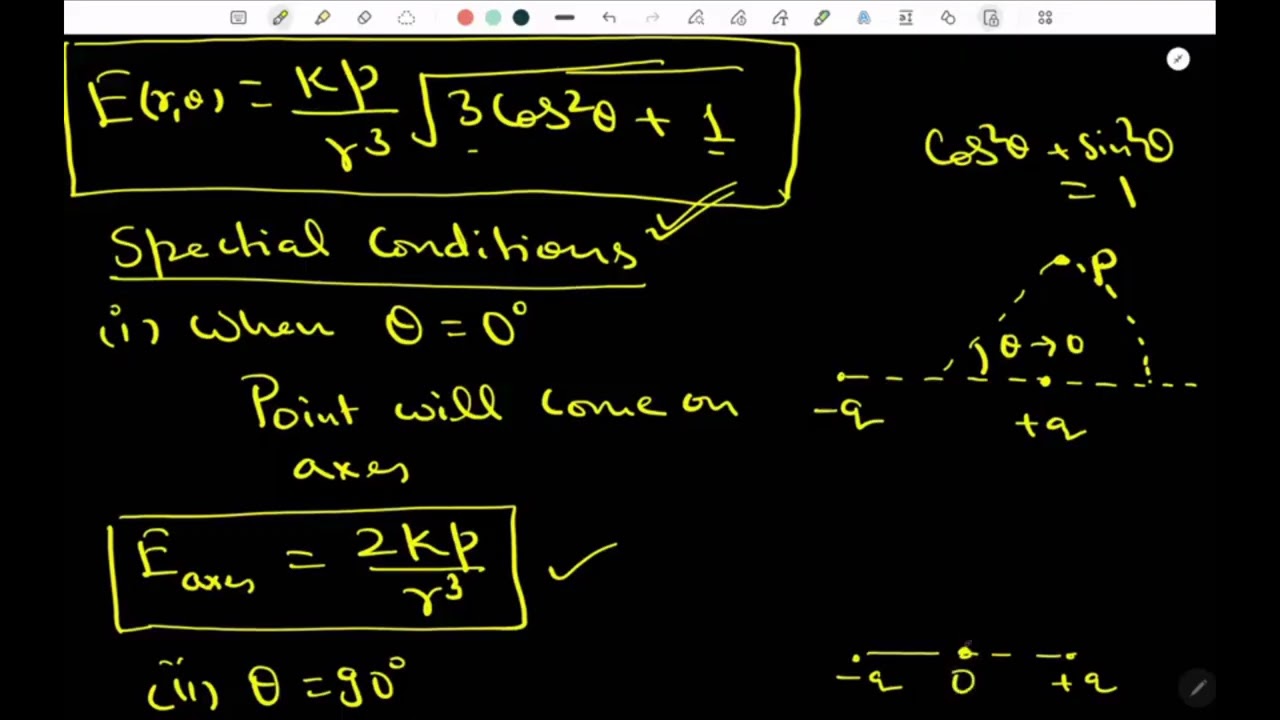 E(r,θ) = kp/r³ √3Cos²θ + 1
Cos²θ + sin²θ
= 1
Spectial Conditions
(i) when θ = 0°
Point will come on
axes
E axes = 2kp/r³
(ii) θ = 90°
P
θ → 0
-q
+q
-q
0
+q